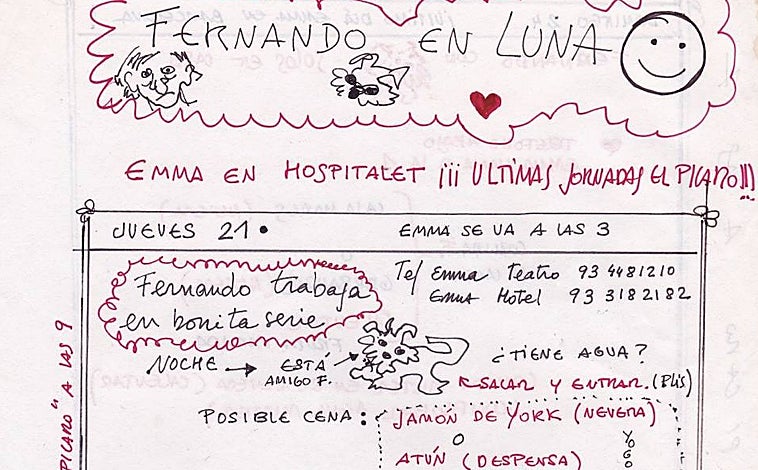 FERNANDO EN LUNA
EMMA EN HOSPITALET ¡¡¡ ULTIMAS JORNADAS EL PICARO!!!
JUEVES 21 • EMMA SE VA A LAS 3
Fernando trabaja
en bonita serie
Tel Emma Teatro 93 4481210
Emma Hotel 93 3182182
NOCHE → ESTÁ
AMIGO F.
¿TIENE AGUA?
SACAR Y ENTRAR. (Plis)
POSIBLE CENA: JAMÓN DE YORK (NEVERA)
O
ATÚN (DESPENSA)
YOGO
PICARO" A LAS 9